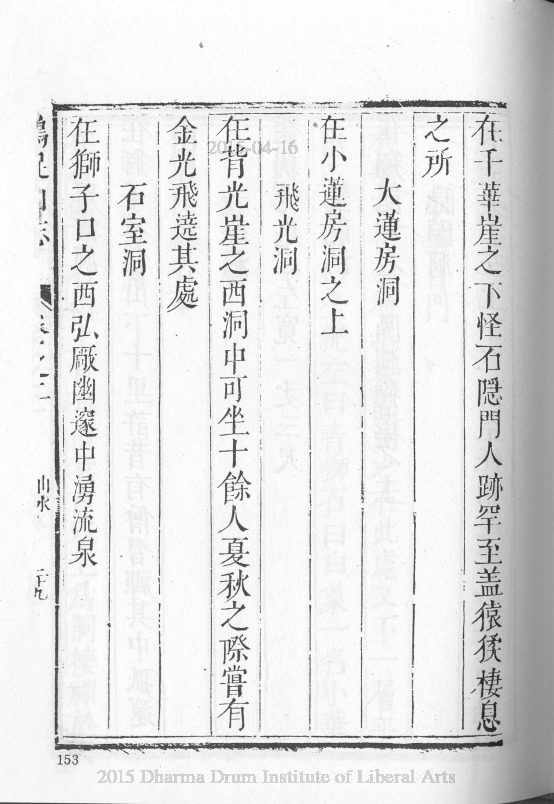 在千華崖之下怪石隱門人跡罕至盖猿猱棲息
之所
大蓮房洞
在小蓮房洞之上
飛光洞
在背光崖之西洞中可坐十餘人夏秋之際嘗有
金光飛遶其處
石室洞
在獅子口之西弘厰幽邃中湧流泉
山水
153
2015 Dharma Drum Institute of Liberal Arts